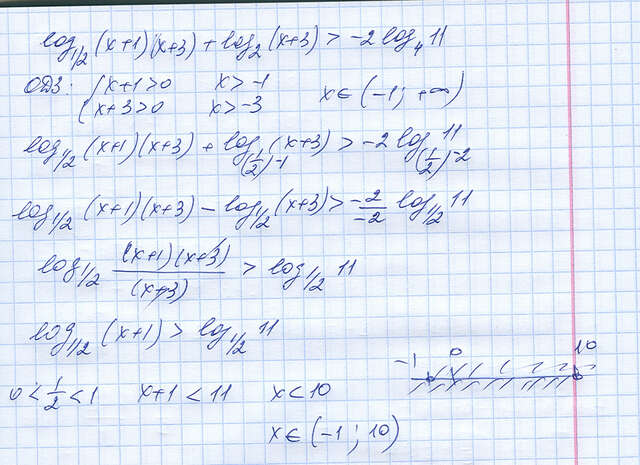 log_{1/2}(x+1)(x+3) + log_2(x+3) > -2 log_4 11
ОДЗ: { x+1>0 x>-1 x∈(-1; +∞)
x+3>0 x>-3
log_{1/2}(x+1)(x+3) + log_{(1/2)^{-1}}(x+3) > -2 log_{(1/2)^{-2}} 11
log_{1/2}(x+1)(x+3) - log_{1/2}(x+3) > -2/-2 log_{1/2} 11
log_{1/2} (x+1)(x+3)/(x+3) > log_{1/2} 11
log_{1/2}(x+1) > log_{1/2} 11
-1 0 10
0 < 1/2 < 1 x+1 < 11 x<10
x∈(-1; 10)